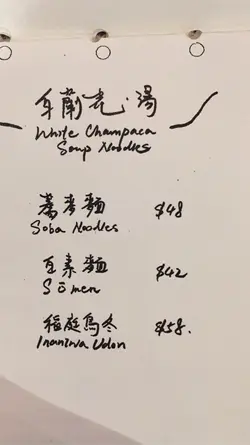 白蘭花湯
White Champaca
Soup Noodles
蕎麥麵 $48
Soba Noodles
素麵 $42
Sōmen
稻庭烏冬 $58.
Inaniwa Udon